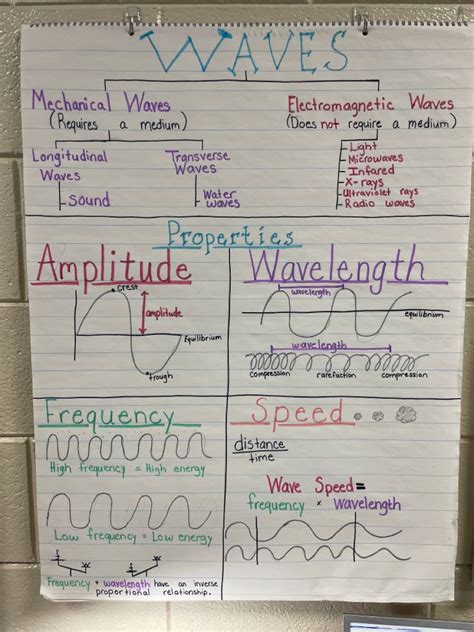 WAVES
Mechanical Waves
(Requires a medium)
Longitudinal
Waves
- Sound
Transverse
Waves
Water
waves
Electromagnetic Waves
(Does not require a medium)
- Light
- Microwaves
- Infared
- X-rays
- Ultraviolet rays
- Radio waves
Properties
Amplitude
crest
amplitude
Equilibrium
trough
Wavelength
wavelength
equilibrium
wavelength
compression rarefaction compression
Frequency
High frequency = High energy
Low frequency = Low energy
Frequency + wavelength have an inverse
proportional relationship.
Speed
distance
time
Wave Speed=
frequency × Wavelength